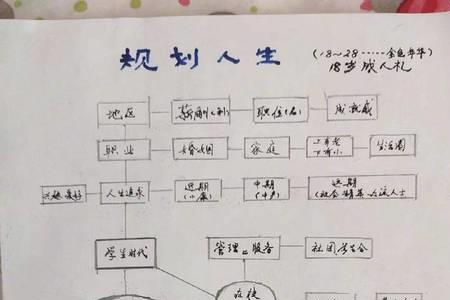 规划人生
(18~28……金色年华)
18岁成人礼
地区 薪酬(利) 职位(名) 成就感
职业 婚姻 家庭 上有老 下有小 生活圈
兴趣爱好 人生追求 近期(小康) 中期(中产) 远期(社会精英 上流人士)
学生时代 管理 服务 社团学生会
在校